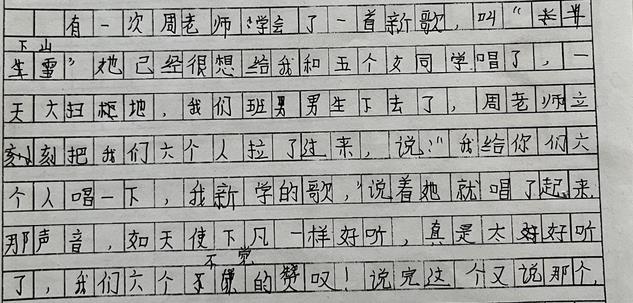 有一次周老师学会了一首新歌，叫“
下山
”她已经很想给我和五个女同学唱了，一
天大扫地，我们班男男生下去了，周老师立
刻把我们六个人拉了过来，说：“我给你们六
个人唱一下，我新学的歌，”说着她就唱了起来
那声音，如天使下凡一样好听，真是太好好听
不觉
了，我们六个的赞叹！说完这个又说那个，